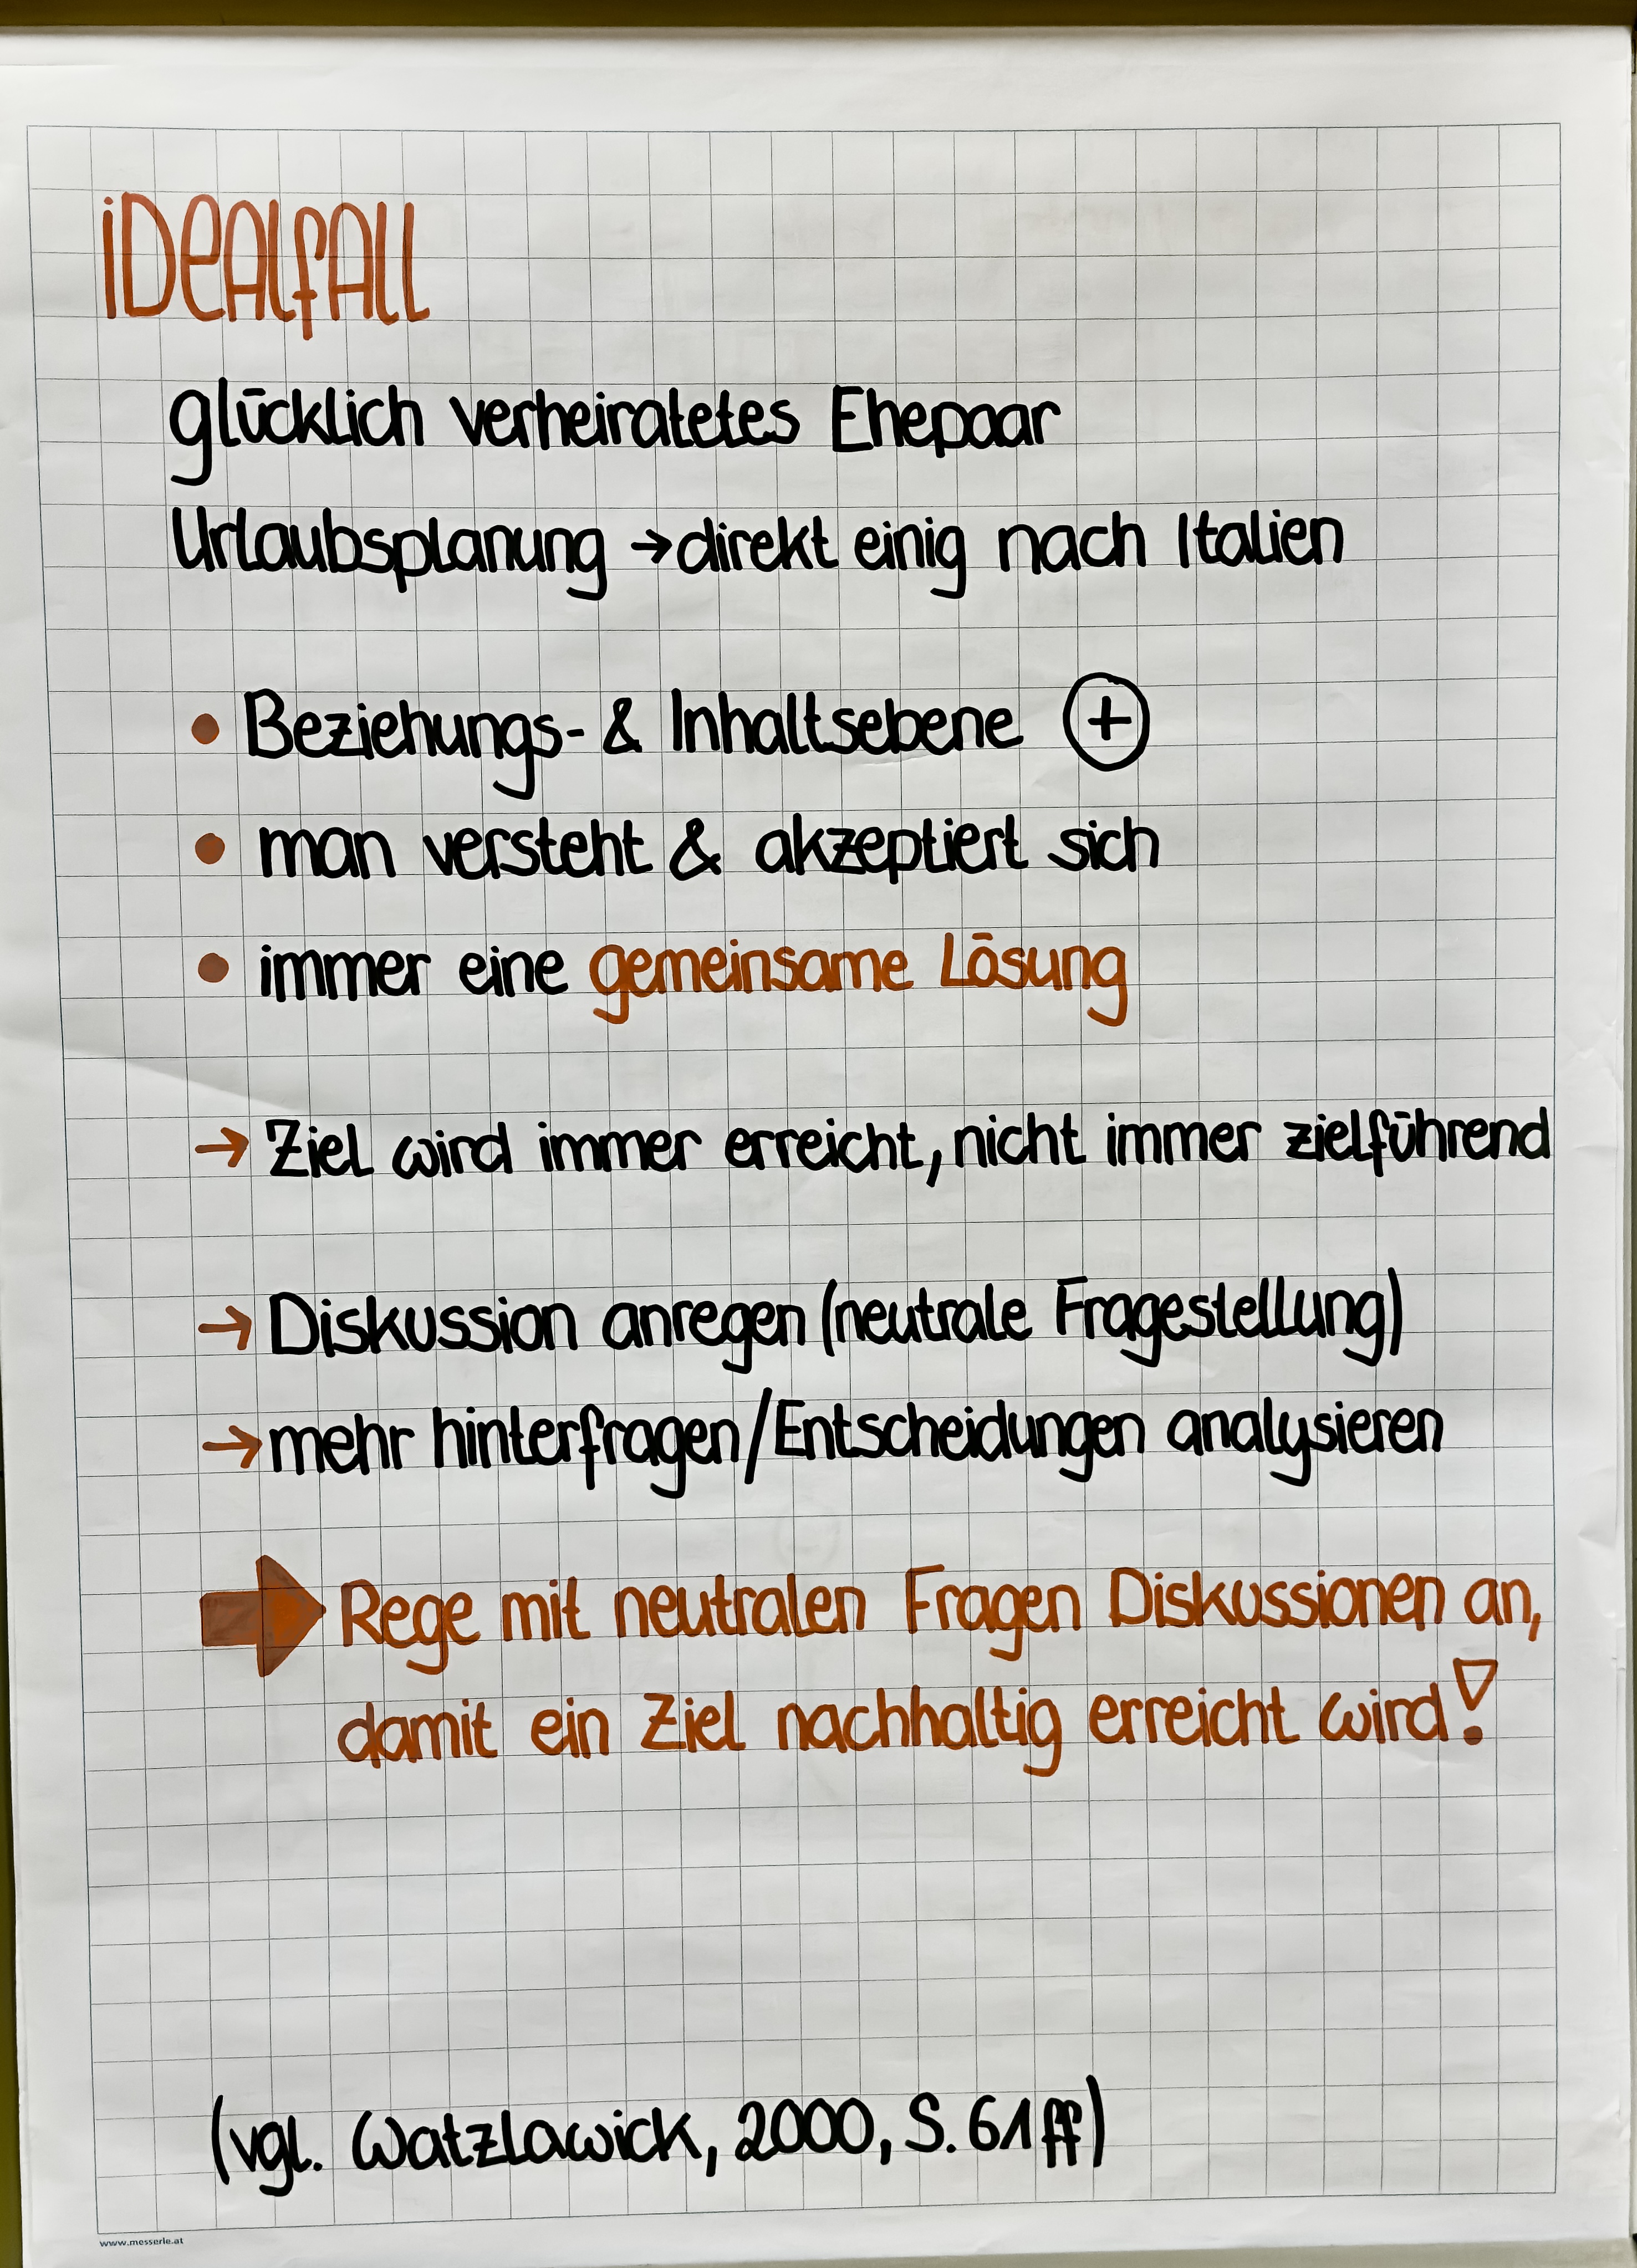 iDeAlfAll
glücklich verheiratetes Ehepaar
Urlaubsplanung → direkt einig nach Italien
• Beziehungs- & Inhaltsebene ⊕
• man versteht & akzeptiert sich
• immer eine gemeinsame Lösung
→ Ziel wird immer erreicht, nicht immer zielführend
→ Diskussion anregen (neutrale Fragestellung)
→ mehr hinterfragen/Entscheidungen analysieren
➡ Rege mit neutralen Fragen Diskussionen an,
damit ein Ziel nachhaltig erreicht wird!
(vgl. Watzlawick, 2000, S. 61 ff)
www.messerle.at